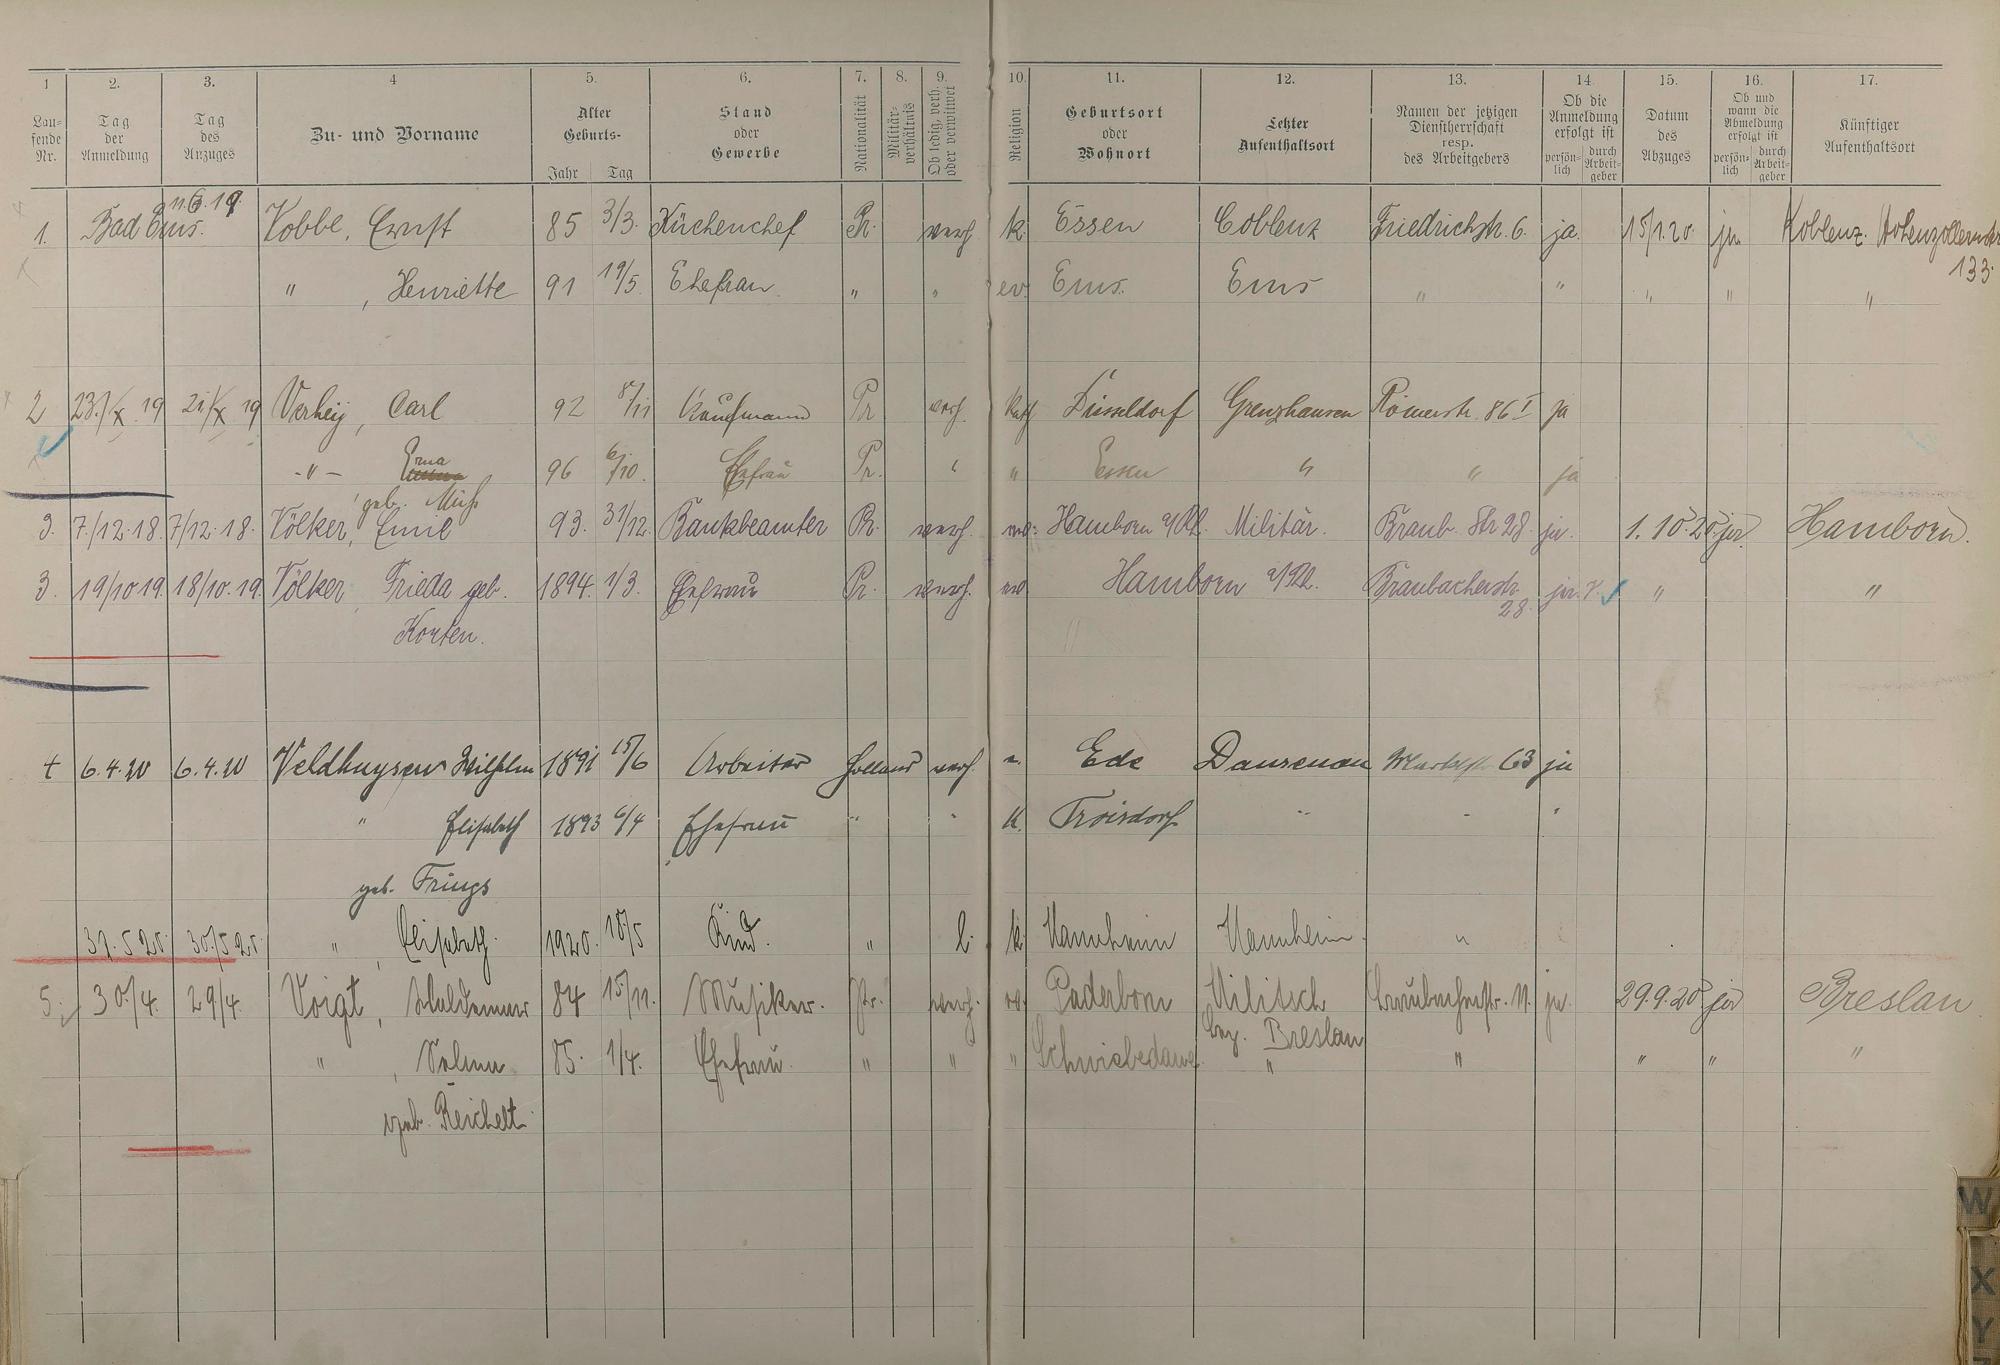 1 2. 3. 4 5. 6. 7. 8. 9. 10. 11. 12. 13. 14. 15. 16. 17.
Lau-
fende
Nr.
Tag
der
Anmeldung
Tag
des
Anzuges
Zu- und Vorname
Alter
Geburts-
Jahr Tag
Stand
oder
Gewerbe
Nationalität
Militär-
verhältnis
Ob ledig, verh.
oder verwitwet
Religion
Geburtsort
oder
Wohnort
Letzter
Aufenthaltsort
Namen der jetzigen
Dienstherrschaft
resp.
des Arbeitgebers
Ob die
Anmeldung
erfolgt ist
persön-
lich
durch
Arbeit-
geber
Datum
des
Abzuges
Ob und
wann die
Abmeldung
erfolgt ist
persön-
lich
durch
Arbeit-
geber
Künftiger
Aufenthaltsort
11.6.19.
1. Bad Ems. Kobbe, Ernst 85 3/3. Küchenchef Pr. verh. k. Essen Coblenz Friedrichstr. 6. ja. 15/1.20. ja Koblenz. Hohenzollernstr
133.
" , Henriette 91 19/5. Ehefrau. " " ev. Ems. Ems " " " " "
2 23./X 19 21/X 19 Verheij, Carl 92 8/11 Kaufmann Pr verh. kath Düsseldorf Grenzhausen Römerstr. 86 I ja
-"- Erna 96 6/10. Ehefrau Pr. " " Essen " " ja
geb.
3. 7./12.18. 7/12.18. Völker, Emil 93. 31/12. Bankbeamter Pr. verh. ev. Hamborn a/Rh. Militär. Braub. Str 28. ja. 1.10.20. ja. Hamborn.
3. 19/10 19. 18/10.19. Völker, Frieda geb. 1894. 1/3. Ehefrau Pr. verh. ev. Hamborn a/Rh. Braubacherstr. ja. " "
28.
Korten.
4 6.4.20 6.4.20 Veldhuysen Wilhelm 1891 15/6 Arbeiter Holland verh. Ede Dausenau 63 ja
" Elisabeth 1893 6/4 Ehefrau " " k. Troisdorf " " "
geb. Frings
31.5.20. 30./5.20. " , Elisabeth. 1920. 18/5 Kind. " l. k. Mannheim Mannheim. "
5. 30./4. 29/4. Voigt, Waldemar 84 15./11. Musiker. Pr. verh. ev. Paderborn Militsch Braubacherstr. 11. ja. 29.9.20 ja Breslau
bez. Breslau
" , Selma 85. 1/4. Ehefrau. " " " " " " " "
geb. Reichelt.
W
X
Y